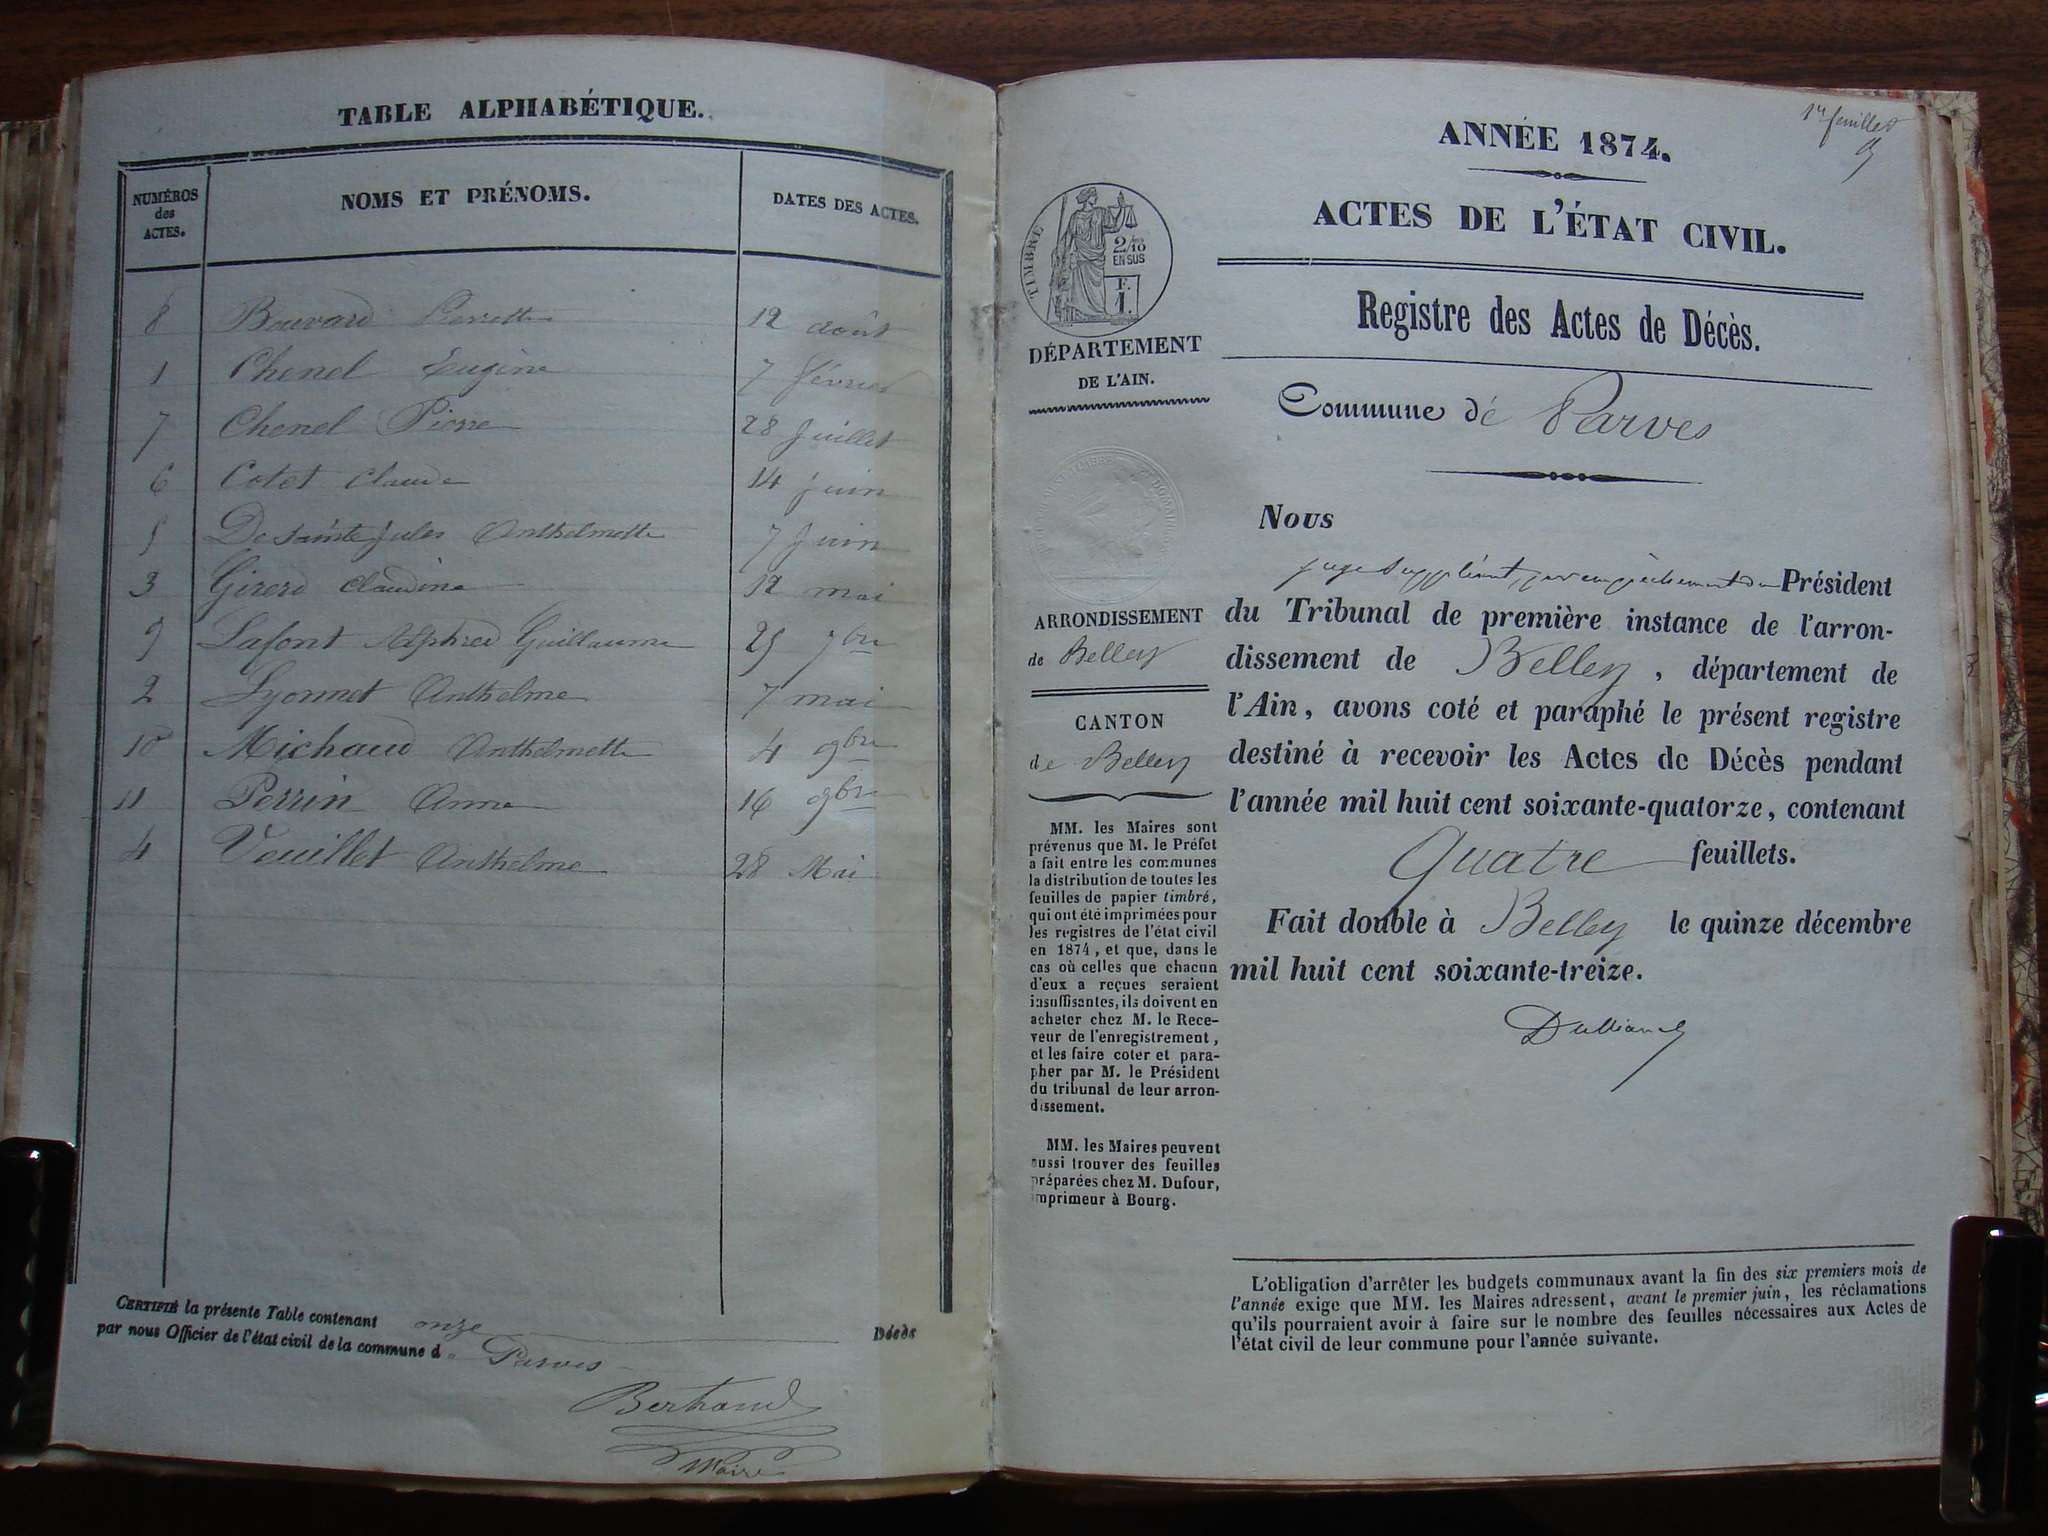 TABLE ALPHABÉTIQUE.
NUMÉROS
des
ACTES.
NOMS ET PRÉNOMS.
DATES DES ACTES.
8 Bouvard Pierrette 12 août
1 Chenel Eugène 7 février
7 Chenel Pierre 28 juillet
6 Cotet Claude 14 juin
5 De Sainte Jules Anthelmette 7 juin
3 Girerd Claudine 12 mai
9 Lafont Alphred Guillaume 25 7bre
2 Lyonnet Anthelme 7 mai
10 Michaud Anthelmette 4 9bre
11 Perrin Anna 16 9bre
4 Veuillet Anthelme 28 Mai
CERTIFIÉ la présente Table contenant onze Décès
par nous Officier de l'état civil de la commune de Parves
Bertrand
Maire
1er feuillet
ANNÉE 1874.
ACTES DE L'ÉTAT CIVIL.
Registre des Actes de Décès.
Commune de Parves
TIMBRE
2/10
EN SUS
F.
1.
DÉPARTEMENT
DE L'AIN.
ARRONDISSEMENT
de Belley
CANTON
de Belley
MM. les Maires sont
prévenus que M. le Préfet
a fait entre les communes
la distribution de toutes les
feuilles de papier timbré,
qui ont été imprimées pour
les registres de l'état civil
en 1874, et que, dans le
cas où celles que chacun
d'eux a reçues seraient
insuffisantes, ils doivent en
acheter chez M. le Rece-
veur de l'enregistrement,
et les faire coter et para-
pher par M. le Président
du tribunal de leur arron-
dissement.
MM. les Maires peuvent
aussi trouver des feuilles
préparées chez M. Dufour,
imprimeur à Bourg.
Nous
juge suppléant, par empêchement du Président
du Tribunal de première instance de l'arron-
dissement de Belley, département de
l'Ain, avons coté et paraphé le présent registre
destiné à recevoir les Actes de Décès pendant
l'année mil huit cent soixante-quatorze, contenant
Quatre feuillets.
Fait double à Belley le quinze décembre
mil huit cent soixante-treize.
L'obligation d'arrêter les budgets communaux avant la fin des six premiers mois de
l'année exige que MM. les Maires adressent, avant le premier juin, les réclamations
qu'ils pourraient avoir à faire sur le nombre des feuilles nécessaires aux Actes de
l'état civil de leur commune pour l'année suivante.